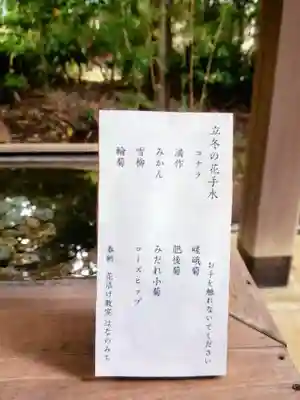 立冬の花手水
お手を触れないでください
コナラ
嵯峨菊
満作
肥後菊
みかん
みだれ小菊
雪柳
ローズヒップ
輪菊
奉納 花活け教室 はなのみち